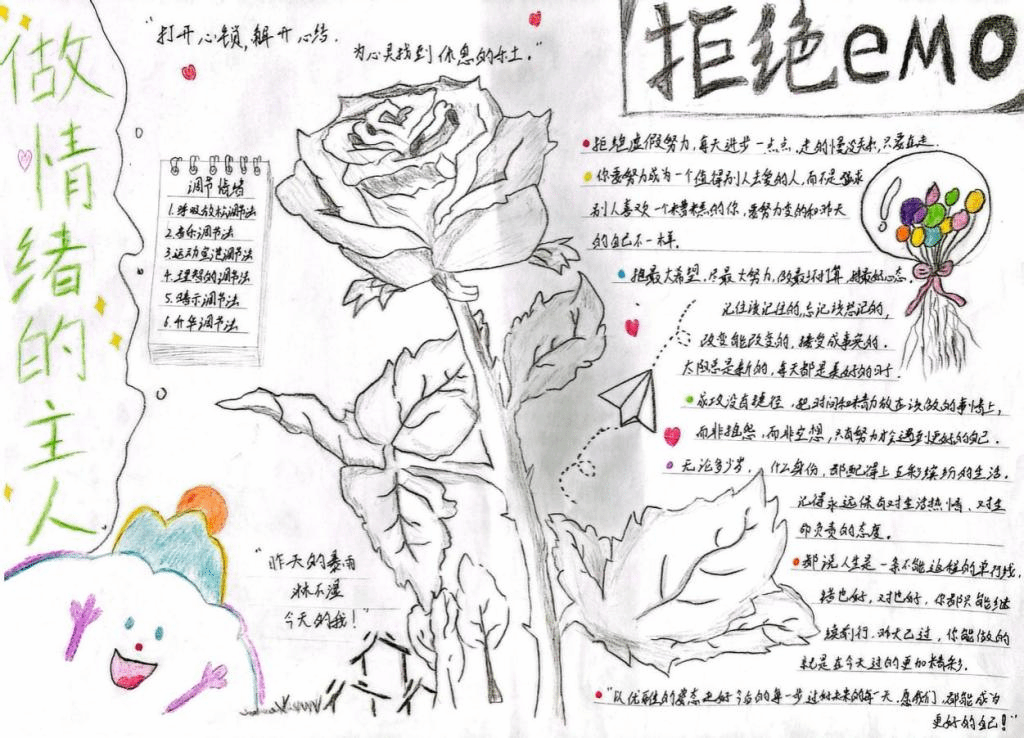 做情绪的主人
"打开心锁,解开心结.
为心灵找到休息的乐土."
拒绝eMO
调节情绪
1.呼吸放松调节法
2.音乐调节法
3.运动宣泄调节法
4.理想的调节法
5.暗示调节法
6.升华调节法
拒绝虚假努力,每天进步一点点,走的慢没关系,只要在走.
你要努力成为一个值得别人去爱的人,而不是强求
别人喜欢一个糟糕的你,要努力变的和昨天
的自己不一样.
抱最大希望,尽最大努力,做最坏打算,持最好心态.
记住该记住的,忘记该忘记的,
改变能改变的,接受成事实的.
太阳总是新的,每天都是美好的日子.
成功没有捷径,把时间和精力放在该做的事情上,
而非抱怨,而非空想,只有努力才会遇到更好的自己.
无论多少岁,什么身份,都配得上五彩缤纷的生活.
记得永远保有对生活热情、对生
命负责的态度.
都说人生是一条不能返程的单行线,
错也好,对也好,你都只能继
续前行.昨天已过,你能做的
就是在今天过的更加精彩.
"以优雅的姿态走好今后的每一步过好未来的每一天.愿我们,都能成为
更好的自己!"
"昨天的暴雨
淋不湿
今天的我!"